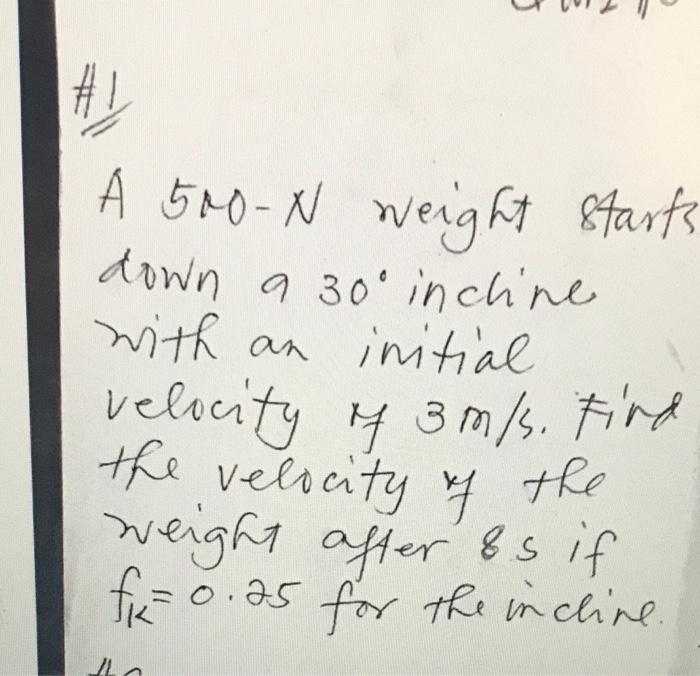 #1
A 500-N weight starts
down a 30° incline
with an initial
velocity of 3 m/s. Find
the velocity of the
weight after 8 s if
fk = 0.25 for the incline.